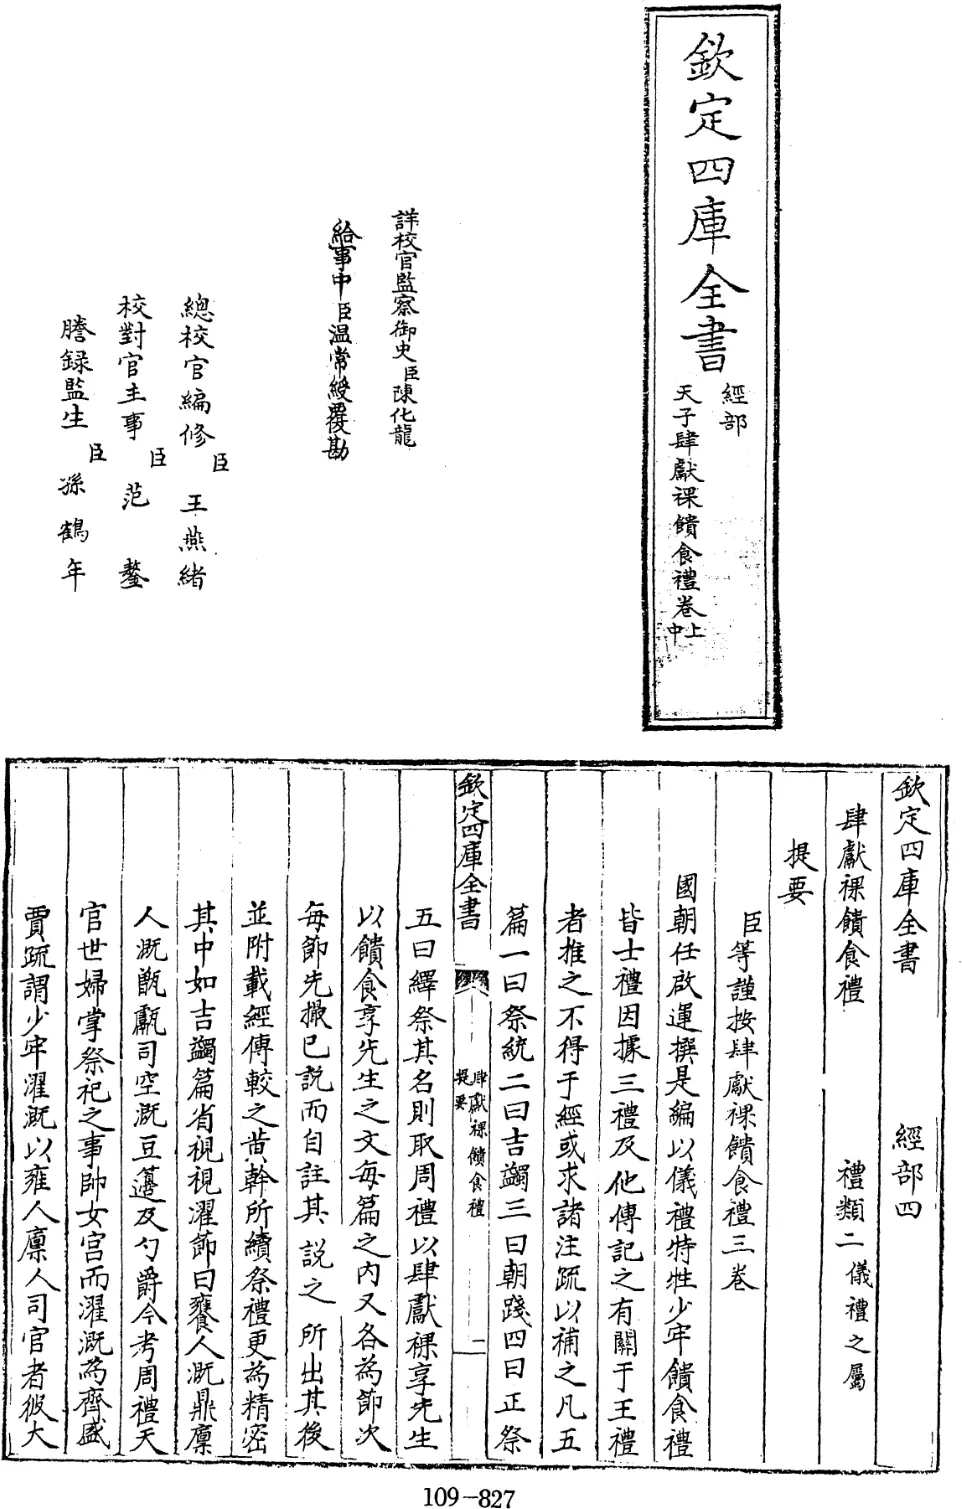 欽定四庫全書
經部
天子肆獻祼饋食禮卷上中
詳校官監察御史臣陳化龍
給事中臣温常綬覆勘
總校官編修臣王燕緒
校對官主事臣范鏊
謄錄監生臣孫鶴年
欽定四庫全書 經部四
肆獻祼饋食禮 禮類二儀禮之屬
提要
臣等謹按肆獻祼饋食禮三卷
國朝任啟運撰是編以儀禮特牲少牢饋食禮
皆士禮因據三禮及他傳記之有關于王禮
者推之不得于經或求諸注疏以補之凡五
篇一曰祭統二曰吉蠲三曰朝踐四曰正祭
欽定四庫全書
肆獻祼饋食禮
提要
一
五曰繹祭其名則取周禮以肆獻祼享先生
以饋食享先生之文每篇之内又各為節次
每節先撮已說而自註其說之所出其後
並附載經傳較之黄幹所續祭禮更為精密
其中如吉蠲篇省視視濯節曰饔人溉鼎廩
人溉甑甗司空溉豆籩及勺爵今考周禮天
官世婦掌祭祀之事帥女宮而濯溉為齊盛
賈疏謂少牢濯溉以雍人廩人司官者彼大
109-827